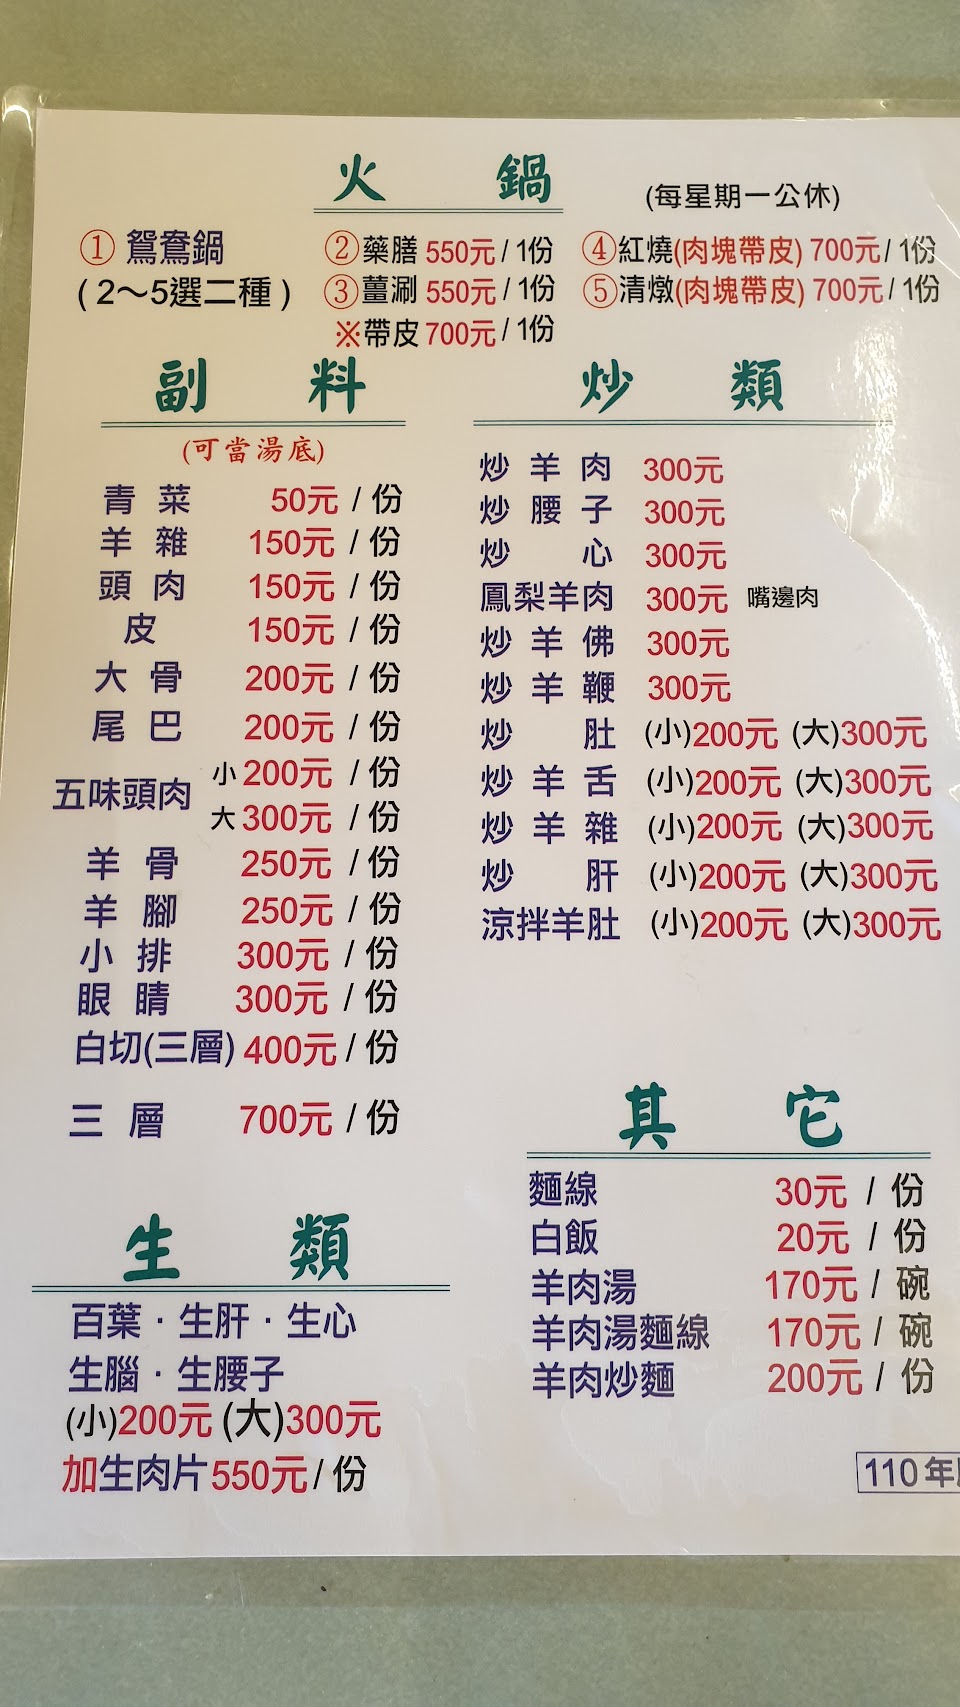 火鍋 (每星期一公休)
① 鴛鴦鍋
(2～5選二種)
② 藥膳 550元 / 1份
③ 薑涮 550元 / 1份
※帶皮 700元 / 1份
④ 紅燒(肉塊帶皮) 700元 / 1份
⑤ 清燉(肉塊帶皮) 700元 / 1份
副料
(可當湯底)
青菜 50元 / 份
羊雜 150元 / 份
頭肉 150元 / 份
皮 150元 / 份
大骨 200元 / 份
尾巴 200元 / 份
五味頭肉 小 200元 / 份
大 300元 / 份
羊骨 250元 / 份
羊腳 250元 / 份
小排 300元 / 份
眼睛 300元 / 份
白切(三層) 400元 / 份
三層 700元 / 份
炒類
炒羊肉 300元
炒腰子 300元
炒心 300元
鳳梨羊肉 300元 嘴邊肉
炒羊佛 300元
炒羊鞭 300元
炒肚 (小)200元 (大)300元
炒羊舌 (小)200元 (大)300元
炒羊雜 (小)200元 (大)300元
炒肝 (小)200元 (大)300元
涼拌羊肚 (小)200元 (大)300元
生類
百葉．生肝．生心
生腦．生腰子
(小)200元 (大)300元
加生肉片550元 / 份
其它
麵線 30元 / 份
白飯 20元 / 份
羊肉湯 170元 / 碗
羊肉湯麵線 170元 / 碗
羊肉炒麵 200元 / 份
110年